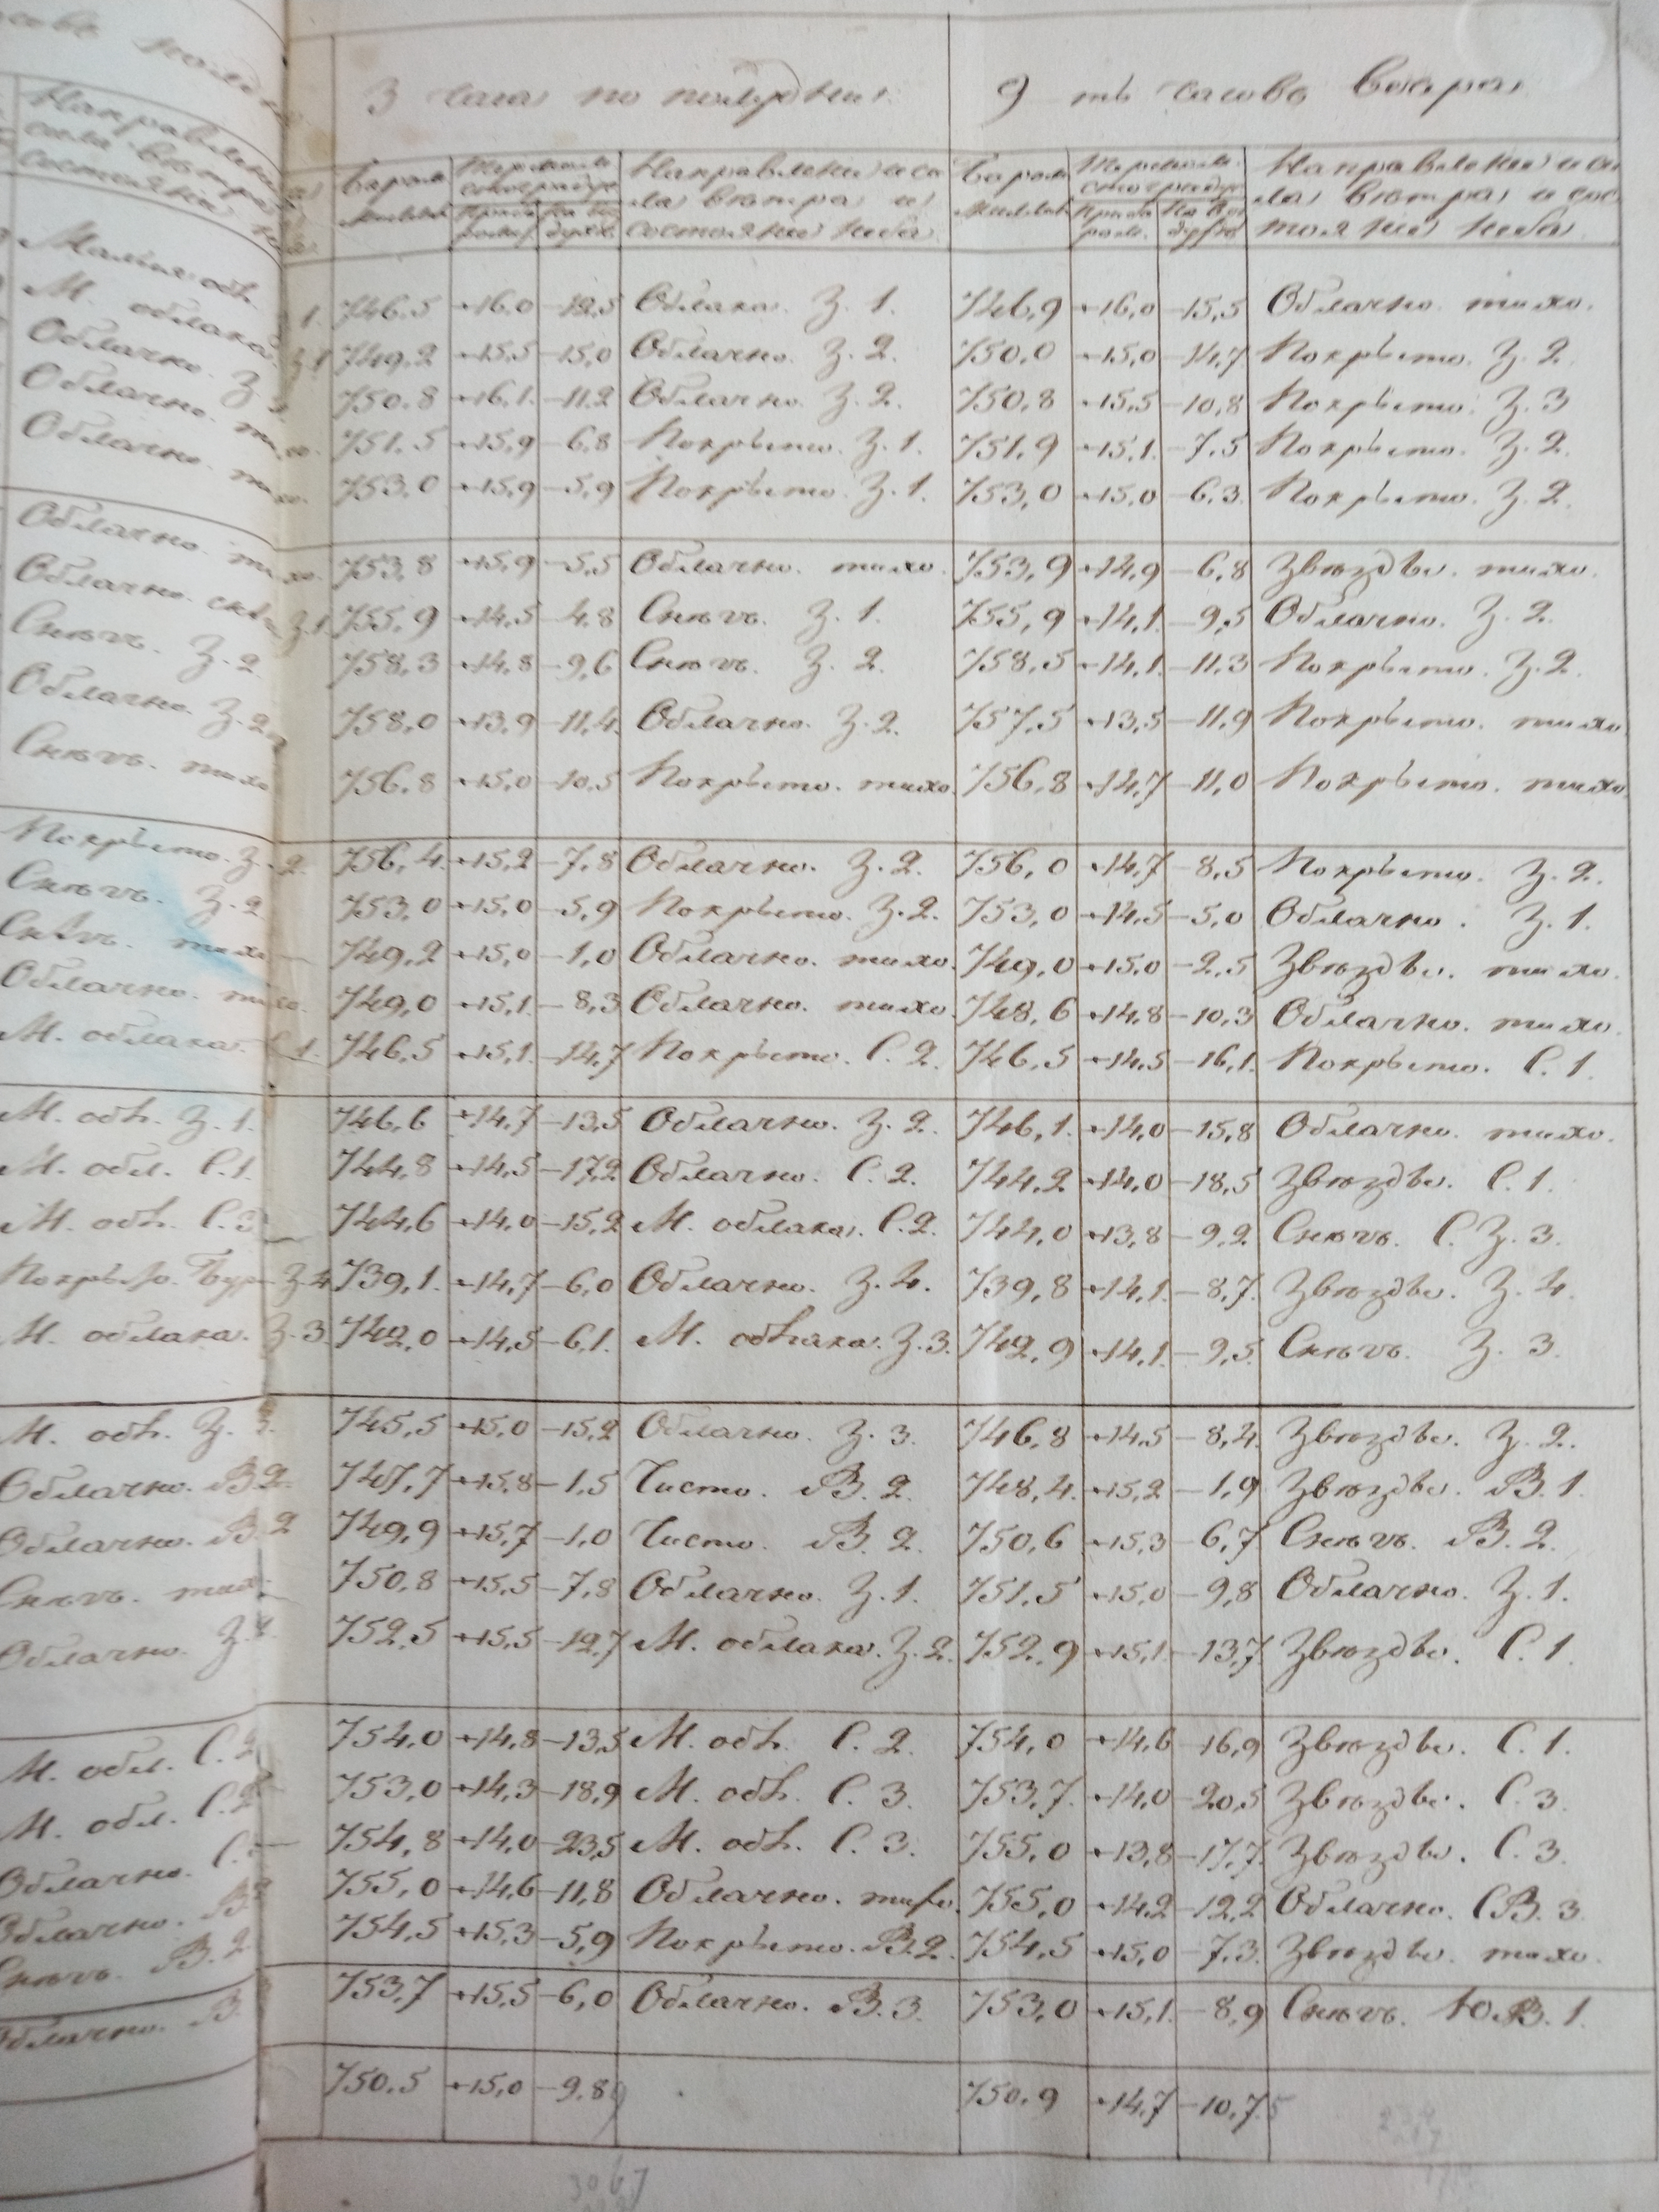 3 часа по полудни. 9 ть часовъ вечера
Направлен
сила вѣтра
состояни
Баром Термомъ стоградус Направлени и си Баром Термом. стоградус Направление и си
Миллим при ба ром на воз духѣ ла вѣтра и состояние неба Миллим при ба ром. на воз духѣ ла вѣтра и сос тояние неба
1. 746.5 +16.0 -12,5 Облака. З. 1. 746,9 +16,0 -15,5 Облачно. тихо.
М. облака. З.1 749,2 +15,5 -15,0 Облачно. З. 2. 750.0 +15,0 -14,7 Покрыто. З. 2.
Облачно. З. 750.8 +16,1. -11,2 Облачно. З. 2. 750,8 +15,5 -10,8 Покрыто. З. 3
Облачно. тихо. 751.5 +15,9 -6,8 Покрыто. З. 1. 751,9 +15,1. -7,5 Покрыто. З. 2.
Облачно. тихо. 753.0 +15,9 -5,9 Покрыто. З. 1. 753,0 +15,0 -6,3. Покрыто. З. 2.
Облачно. тихо. 753,8 +15,9 -5,5 Облачно. тихо. 753,9 +14,9 -6,8 Звѣзды. тихо.
Облачно. З.1 755,9 +14,5 -4,8 Снѣгъ. З. 1. 755,9 +14,1. -9,5 Облачно. З. 2.
Снѣгъ. З. 2 758,3 +14,8 -9,6 Снѣгъ. З. 2. 758,5 +14,1. -11,3 Покрыто. З. 2.
Облачно. З. 2. 758,0 +13,9 -11,4. Облачно. З. 2. 757,5 +13,5 -11,9 Покрыто. тихо.
Снѣгъ. тихо 756.8 +15,0 -10,5 Покрыто. тихо. 756,8 +14,7 -11,0 Покрыто. тихо.
Покрыто. З. 2. 756,4. +15,2 -7,8 Облачно. З. 2. 756,0 +14,7 -8,5 Покрыто. З. 2.
Снѣгъ. З. 2 753,0 +15,0 -5,9 Покрыто. З. 2. 753,0 +14,5 -5,0 Облачно. З. 1.
Снѣгъ. тихо 749,2 +15,0 -1,0 Облачно. тихо. 749,0 +15,0 -2,5 Звѣзды. тихо.
Облачно. тихо. 749,0 +15,1. -8,3 Облачно. тихо. 748,6 +14,8 -10,3 Облачно. тихо.
М. облака. С. 1. 746,5 +15,1. -14,7 Покрыто. С. 2. 746,5 +14,5 -16,1. Покрыто. С. 1.
М. обл. З. 1. 746,6 +14,7 -13,5 Облачно. З. 2. 746,1. +14,0 -15,8 Облачно. тихо.
М. обл. С. 1. 744,8 +14,5 -17,2 Облачно. С. 2. 744,2. +14,0 -18,5 Звѣзды. С. 1.
М. обл. С. 3 744,6 +14,0 -15,2 М. облака. С. 2. 744,0 +13,8 -9,2. Снѣгъ. С. З. 3.
Покрыто. Бур З. 4 739,1. +14,7 -6,0 Облачно. З. 4. 739,8 +14,1. -8,7. Звѣзды. З. 4.
М. облака. З. 3. 742,0 +14,5 -6,1. М. облака. З. 3. 742,9 +14,1. -9,5. Снѣгъ. З. 3.
М. обл. З. 3. 745,5 +15,0 -15,2 Облачно. З. 3. 746,8 +14,5 -8,4. Звѣзды. З. 2.
Облачно. В. 2. 747,7 +15,8 -1,5 Чисто. В. 2. 748,4. +15,2 -1,9 Звѣзды. В. 1.
Облачно. В. 2 749,9 +15,7 -1,0 Чисто. В. 2. 750,6 +15,3 -6,7 Снѣгъ. В. 2.
Снѣгъ. тихо. 750,8 +15,5 -7,8 Облачно. З. 1. 751,5 +15,0 -9,8 Облачно. З. 1.
Облачно. З. 752,5 +15,5 -12,7 М. облака. З. 2. 752,9 +15,1. -13,7. Звѣзды. С. 1.
М. обл. С. 2 754,0 +14,8 -13,5 М. обл. С. 2. 754,0 +14,6 -16,9 Звѣзды. С. 1.
М. обл. С. 2 753,0 +14,3 -18,9 М. обл. С. 3. 753,7. +14,0 -20,5 Звѣзды. С. 3.
Облачно. С. 754,8 +14,0 -23,5 М. обл. С. 3. 755,0 +13,8 -17,7. Звѣзды. С. 3.
Облачно. В 755,0 +14,6 -11,8 Облачно. тихо. 755,0 +14,2 -12,2 Облачно. СВ. 3.
Снѣгъ. В. 2 754,5 +15,3 -5,9 Покрыто. В. 2. 754,5 +15,0 -7,3. Звѣзды. тихо.
Облачно. В. 753,7 +15,5 -6,0 Облачно. В. 3. 753,0 +15,1. -8,9 Снѣгъ. Ю.В. 1.
750.5 +15,0 -9.89 750.9 +14,7 -10,75
3067